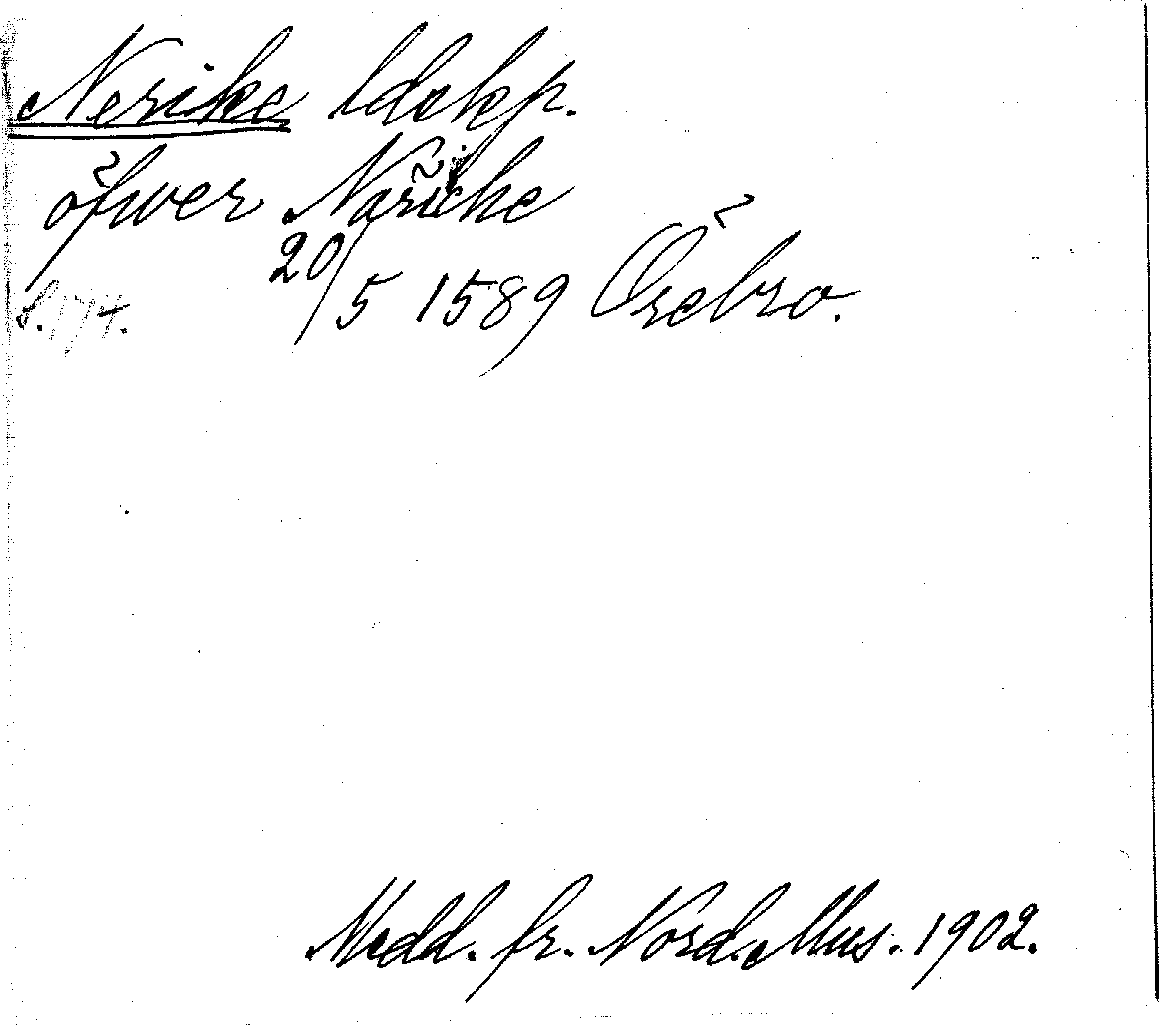 Nerike ldskp.
öfwer Näricke
20/5 1589 Örebro.
S. 174.
Medd. fr. Nord. Mus. 1902.